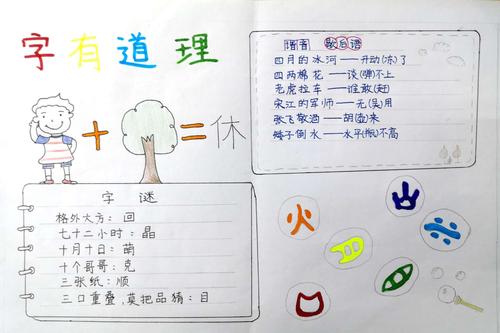 字有道理
+ = 休
字谜
格外大方：回
七十二小时：晶
十月十日：萌
十个哥哥：克
三张纸：顺
三口重叠，莫把品猜：目
谐音 歇后语
四月的冰河——开动(冻)了
四两棉花——谈(弹)不上
老虎拉车——谁敢(赶)
宋江的军师——无(吴)用
张飞敬酒——胡(壶)来
矮子倒水——水平(瓶)不高
火